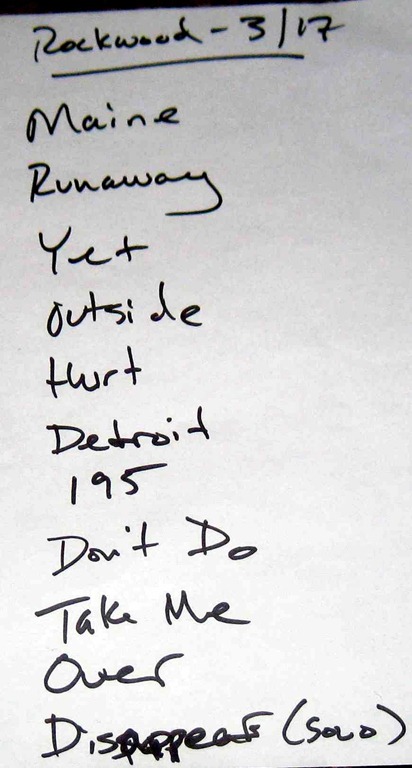 Rockwood - 3/17
Maine
Runaway
Yet
Outside
Hurt
Detroit
195
Don't Do
Take Me
Over
Disappear (solo)